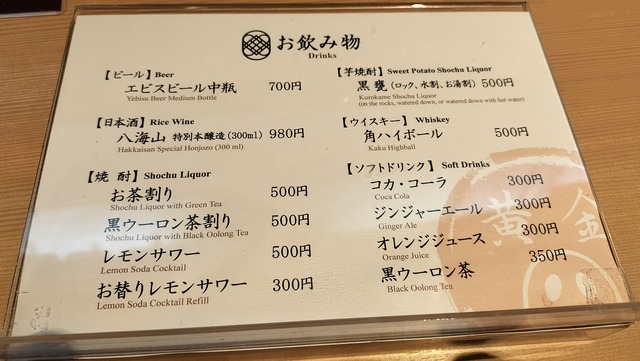 お飲み物
Drinks
【ビール】Beer
ヱビスビール中瓶 700円
Yebisu Beer Medium Bottle
【日本酒】Rice Wine
八海山 特別本醸造(300ml) 980円
Hakkaisan Special Honjozo (300 ml)
【焼 酎】Shochu Liquor
お茶割り 500円
Shochu Liquor with Green Tea
黒ウーロン茶割り 500円
Shochu Liquor with Black Oolong Tea
レモンサワー 500円
Lemon Soda Cocktail
お替りレモンサワー 300円
Lemon Soda Cocktail Refill
【芋焼酎】Sweet Potato Shochu Liquor
黒甕(ロック、水割、お湯割) 500円
Kurokame Shochu Liquor
(on the rocks, watered down, or watered down with hot water)
【ウイスキー】Whiskey
角ハイボール 500円
Kaku Highball
【ソフトドリンク】Soft Drinks
コカ・コーラ 300円
Coca Cola
ジンジャーエール 300円
Ginger Ale
オレンジジュース 300円
Orange Juice
黒ウーロン茶 350円
Black Oolong Tea
黄金